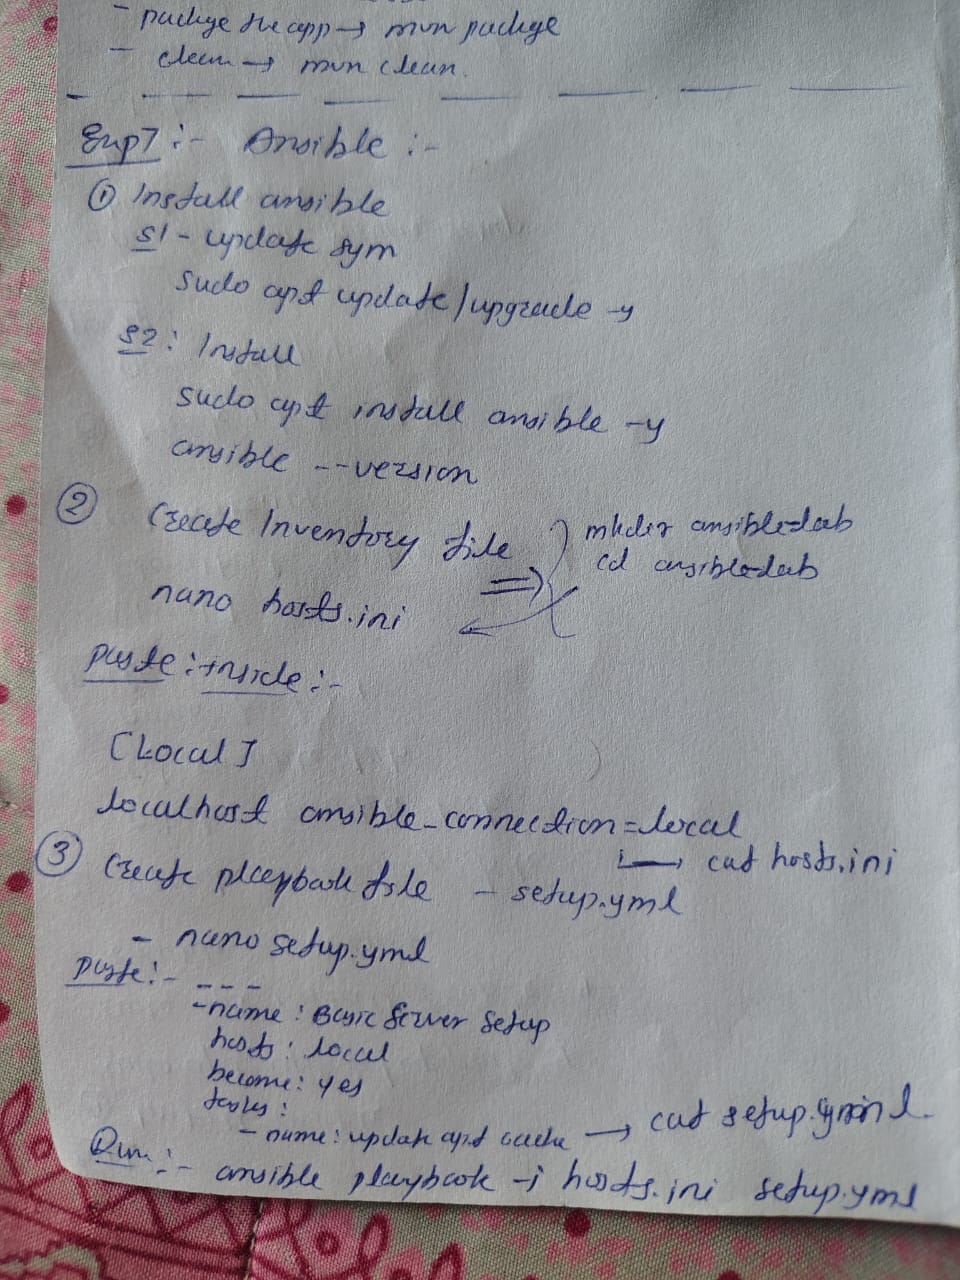 - package the app → mvn package
- clean → mvn clean.
Exp7 :- Ansible :-
① Install ansible
S1 - update sym
sudo apt update/upgrade -y
S2: Install
sudo apt install ansible -y
ansible --version
② Create Inventory file ⇒ mkdir ansible-lab
cd ansible-lab
nano hosts.ini
paste: inside:-
[Local]
localhost ansible_connection=local
→ cat hosts.ini
③ Create playbook file - setup.yml
- nano setup.yml
paste:- ---
- name: Basic Server Setup
hosts: local
become: yes
tasks:
- name: update apt cache → cat setup.yml
Run:- ansible playbook -i hosts.ini setup.yml